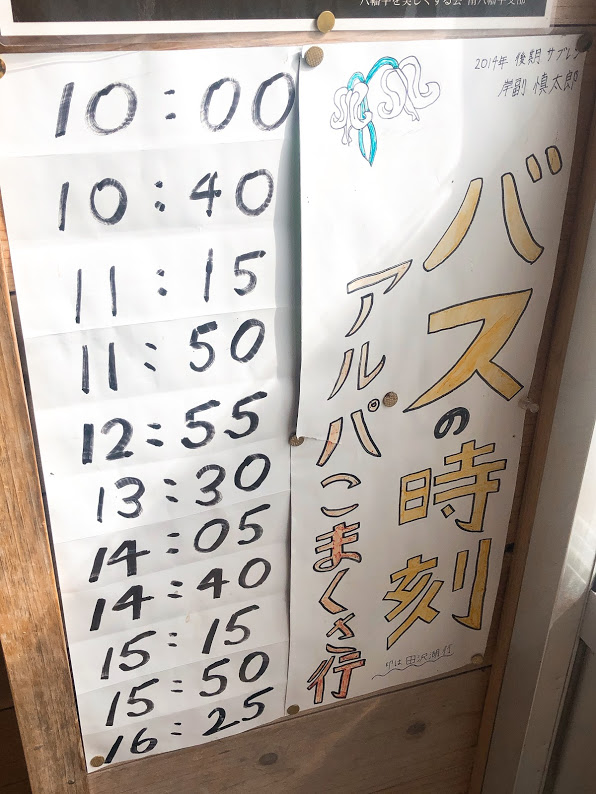 八幡平を美しくする会 南八幡平支部
2014年 後期 サブレ
岸副 慎太郎
バスの時刻
アルパこまくさ行
田沢湖行
10:00
10:40
11:15
11:50
12:55
13:30
14:05
14:40
15:15
15:50
16:25